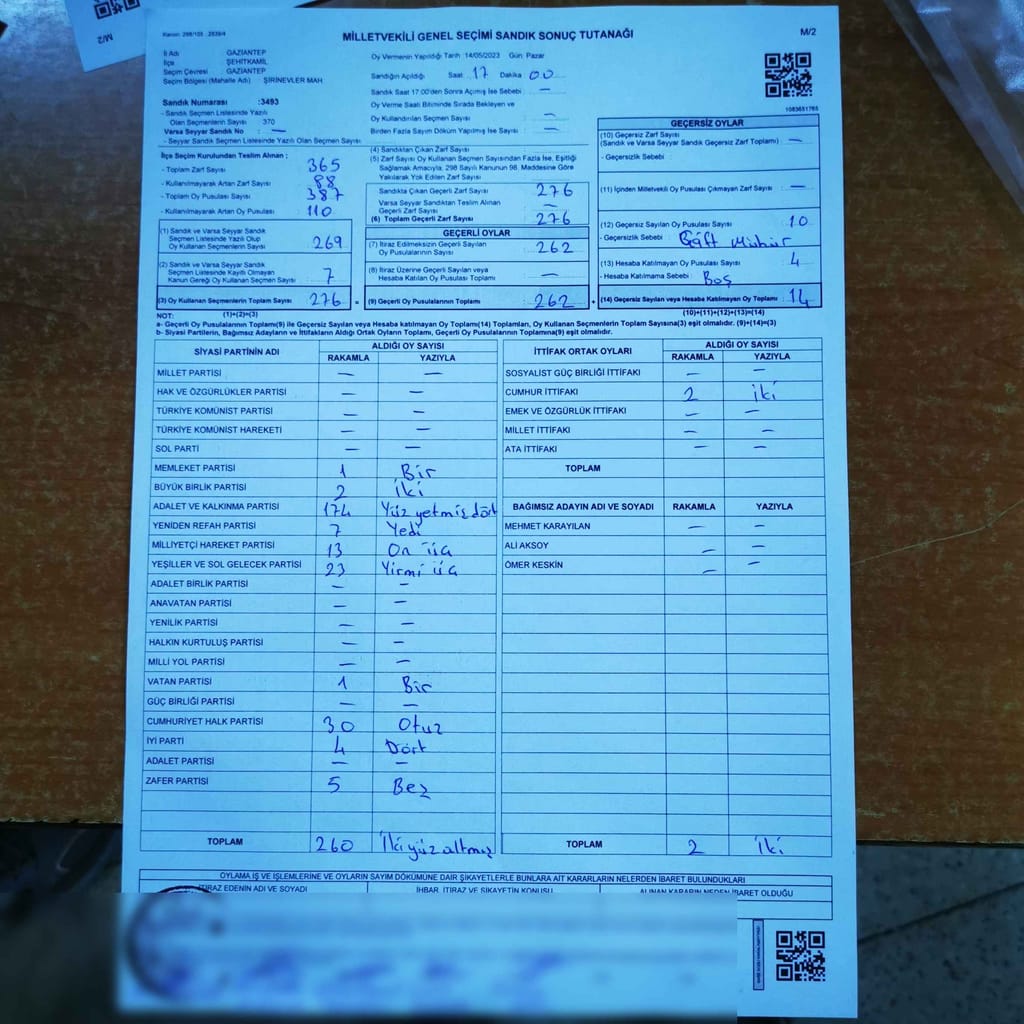 M/2
Kanun: 298/105 - 2839/4
MİLLETVEKİLİ GENEL SEÇİMİ SANDIK SONUÇ TUTANAĞI
M/2
İl Adı GAZİANTEP
İlçe ŞEHİTKAMİL
Seçim Çevresi GAZİANTEP
Seçim Bölgesi (Mahalle Adı) ŞİRİNEVLER MAH
Oy Vermenin Yapıldığı Tarih 14/05/2023 Gün Pazar
Sandığın Açıldığı Saat 17 Dakika 00
Sandık Saat 17:00'den Sonra Açımış İse Sebebi —
Oy Verme Saati Bitiminde Sırada Bekleyen ve
Oy Kullandırılan Seçmen Sayısı —
Birden Fazla Sayım Döküm Yapılmış İse Sayısı —
1083651785
Sandık Numarası :3493
- Sandık Seçmen Listesinde Yazılı
Olan Seçmenlerin Sayısı 370
Varsa Seyyar Sandık No : —
- Seyyar Sandık Seçmen Listesinde Yazılı Olan Seçmen Sayısı
İlçe Seçim Kurulundan Teslim Alınan :
- Toplam Zarf Sayısı 365
- Kullanılmayarak Artan Zarf Sayısı 88
- Toplam Oy Pusulası Sayısı 387
- Kullanılmayarak Artan Oy Pusulası 110
(1) Sandık ve Varsa Seyyar Sandık
Seçmen Listesinde Yazılı Olup
Oy Kullanan Seçmenlerin Sayısı 269
(2) Sandık ve Varsa Seyyar Sandık
Seçmen Listesinde Kayıtlı Olmayan
Kanun Gereği Oy Kullanan Seçmen Sayısı 7
(3) Oy Kullanan Seçmenlerin Toplam Sayısı 276 =
(1)+(2)=(3)
(4) Sandıktan Çıkan Zarf Sayısı
(5) Zarf Sayısı Oy Kullanan Seçmen Sayısından Fazla İse, Eşitliği
Sağlamak Amacıyla; 298 Sayılı Kanunun 98. Maddesine Göre
Yakılarak Yok Edilen Zarf Sayısı
Sandıkta Çıkan Geçerli Zarf Sayısı 276
Varsa Seyyar Sandıktan Teslim Alınan
Geçerli Zarf Sayısı —
(6) Toplam Geçerli Zarf Sayısı 276
GEÇERLİ OYLAR
(7) İtiraz Edilmeksizin Geçerli Sayılan
Oy Pusulalarının Sayısı 262
(8) İtiraz Üzerine Geçerli Sayılan veya
Hesaba Katılan Oy Pusulası Toplamı —
(9) Geçerli Oy Pusulalarının Toplamı 262 +
GEÇERSİZ OYLAR
(10) Geçersiz Zarf Sayısı
(Sandık ve Varsa Seyyar Sandık Geçersiz Zarf Toplamı) —
- Geçersizlik Sebebi
(11) İçinden Milletvekili Oy Pusulası Çıkmayan Zarf Sayısı —
(12) Geçersiz Sayılan Oy Pusulası Sayısı 10
- Geçersizlik Sebebi Çift Mühür
(13) Hesaba Katılmayan Oy Pusulası Sayısı 4
- Hesaba Katılmama Sebebi Boş
(14) Geçersiz Sayılan veya Hesaba Katılmayan Oy Toplamı 14
(10)+(11)+(12)+(13)=(14)
NOT:
a- Geçerli Oy Pusulalarının Toplamı(9) ile Geçersiz Sayılan veya Hesaba katılmayan Oy Toplamı(14) Toplamları, Oy Kullanan Seçmenlerin Toplam Sayısına(3) eşit olmalıdır. (9)+(14)=(3)
b- Siyasi Partilerin, Bağımsız Adayların ve İttifakların Aldığı Ortak Oyların Toplamı, Geçerli Oy Pusulalarının Toplamına(9) eşit olmalıdır.
SİYASİ PARTİNİN ADI ALDIĞI OY SAYISI
RAKAMLA YAZIYLA
MİLLET PARTİSİ — —
HAK VE ÖZGÜRLÜKLER PARTİSİ — —
TÜRKİYE KOMÜNİST PARTİSİ — —
TÜRKİYE KOMÜNİST HAREKETİ — —
SOL PARTİ — —
MEMLEKET PARTİSİ 1 Bir
BÜYÜK BİRLİK PARTİSİ 2 iki
ADALET VE KALKINMA PARTİSİ 174 Yüz yetmiş dört
YENİDEN REFAH PARTİSİ 7 Yedi
MİLLİYETÇİ HAREKET PARTİSİ 13 On üç
YEŞİLLER VE SOL GELECEK PARTİSİ 23 Yirmi üç
ADALET BİRLİK PARTİSİ — —
ANAVATAN PARTİSİ — —
YENİLİK PARTİSİ — —
HALKIN KURTULUŞ PARTİSİ — —
MİLLİ YOL PARTİSİ — —
VATAN PARTİSİ 1 Bir
GÜÇ BİRLİĞİ PARTİSİ — —
CUMHURİYET HALK PARTİSİ 30 Otuz
İYİ PARTİ 4 Dört
ADALET PARTİSİ — —
ZAFER PARTİSİ 5 Beş
TOPLAM 260 İki yüz altmış
İTTİFAK ORTAK OYLARI ALDIĞI OY SAYISI
RAKAMLA YAZIYLA
SOSYALİST GÜÇ BİRLİĞİ İTTİFAKI — —
CUMHUR İTTİFAKI 2 iki
EMEK VE ÖZGÜRLÜK İTTİFAKI — —
MİLLET İTTİFAKI — —
ATA İTTİFAKI — —
TOPLAM
BAĞIMSIZ ADAYIN ADI VE SOYADI RAKAMLA YAZIYLA
MEHMET KARAYILAN — —
ALİ AKSOY — —
ÖMER KESKİN — —
TOPLAM 2 iki
OYLAMA İŞ VE İŞLEMLERİNE VE OYLARIN SAYIM DÖKÜMÜNE DAİR ŞİKAYETLERLE BUNLARA AİT KARARLARIN NELERDEN İBARET BULUNDUKLARI
İTİRAZ EDENİN ADI VE SOYADI İHBAR, İTİRAZ VE ŞİKAYETİN KONUSU ALINAN KARARIN NEDEN İBARET OLDUĞU